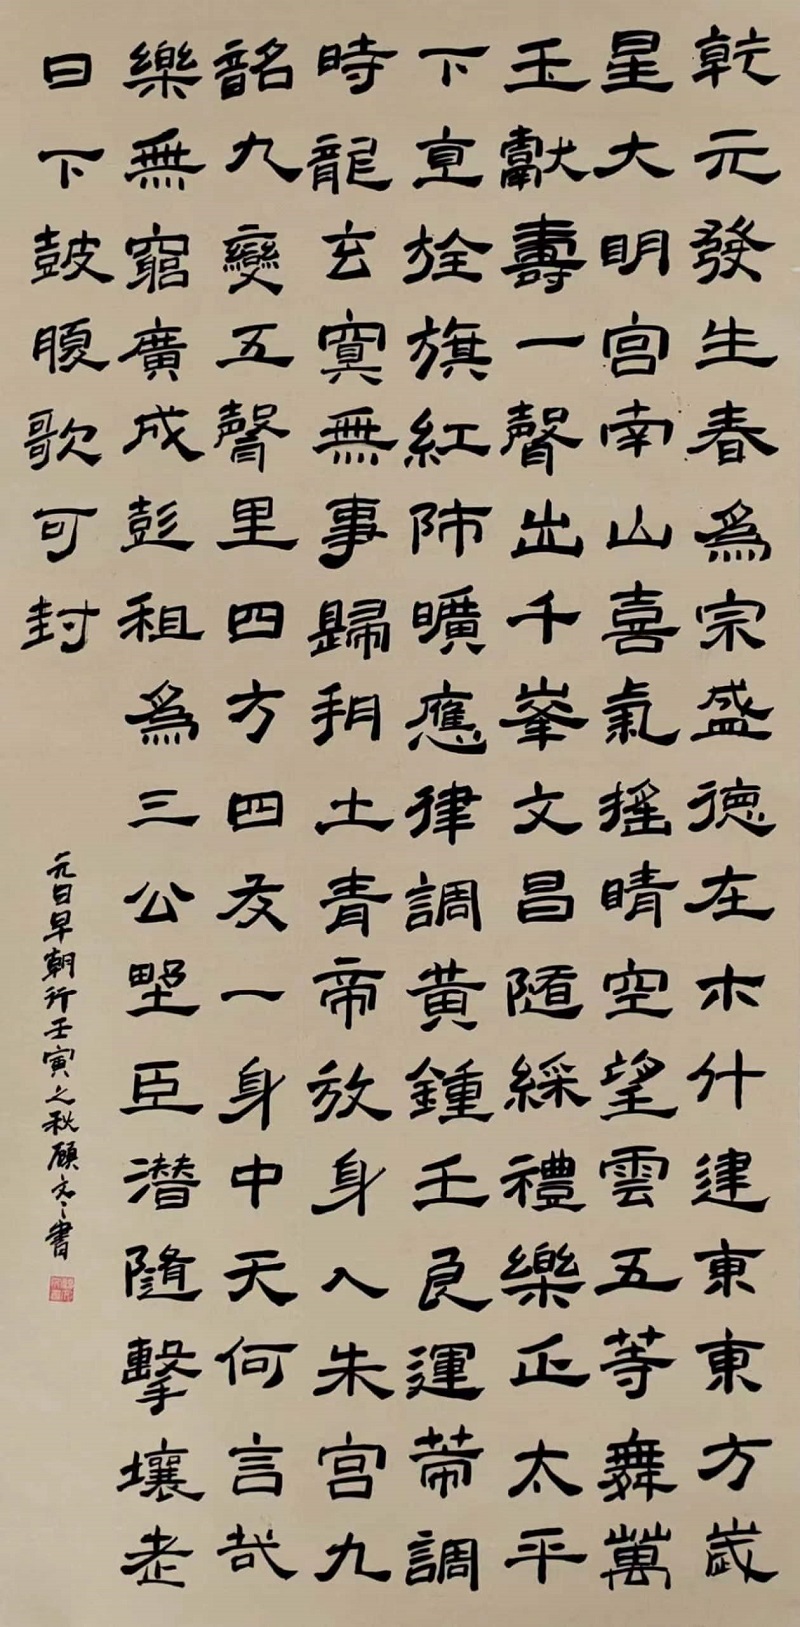 乾元發生春為宗盛德在木斗建東東方歲
星大明宮南山喜氣搖晴空望雲五等舞萬
玉獻壽一聲出千峯文昌隨綵禮樂正太平
下直旌旗紅師曠應律調黃鍾壬良運策調
時龍玄冥無事歸朔土青帝放身入朱宮九
韶九變五聲里四方四友一身中天何言哉
樂無窮廣成彭祖為三公野臣潛隨擊壤老
日下鼓腹歌可封
元日早朝行壬寅之秋顧書